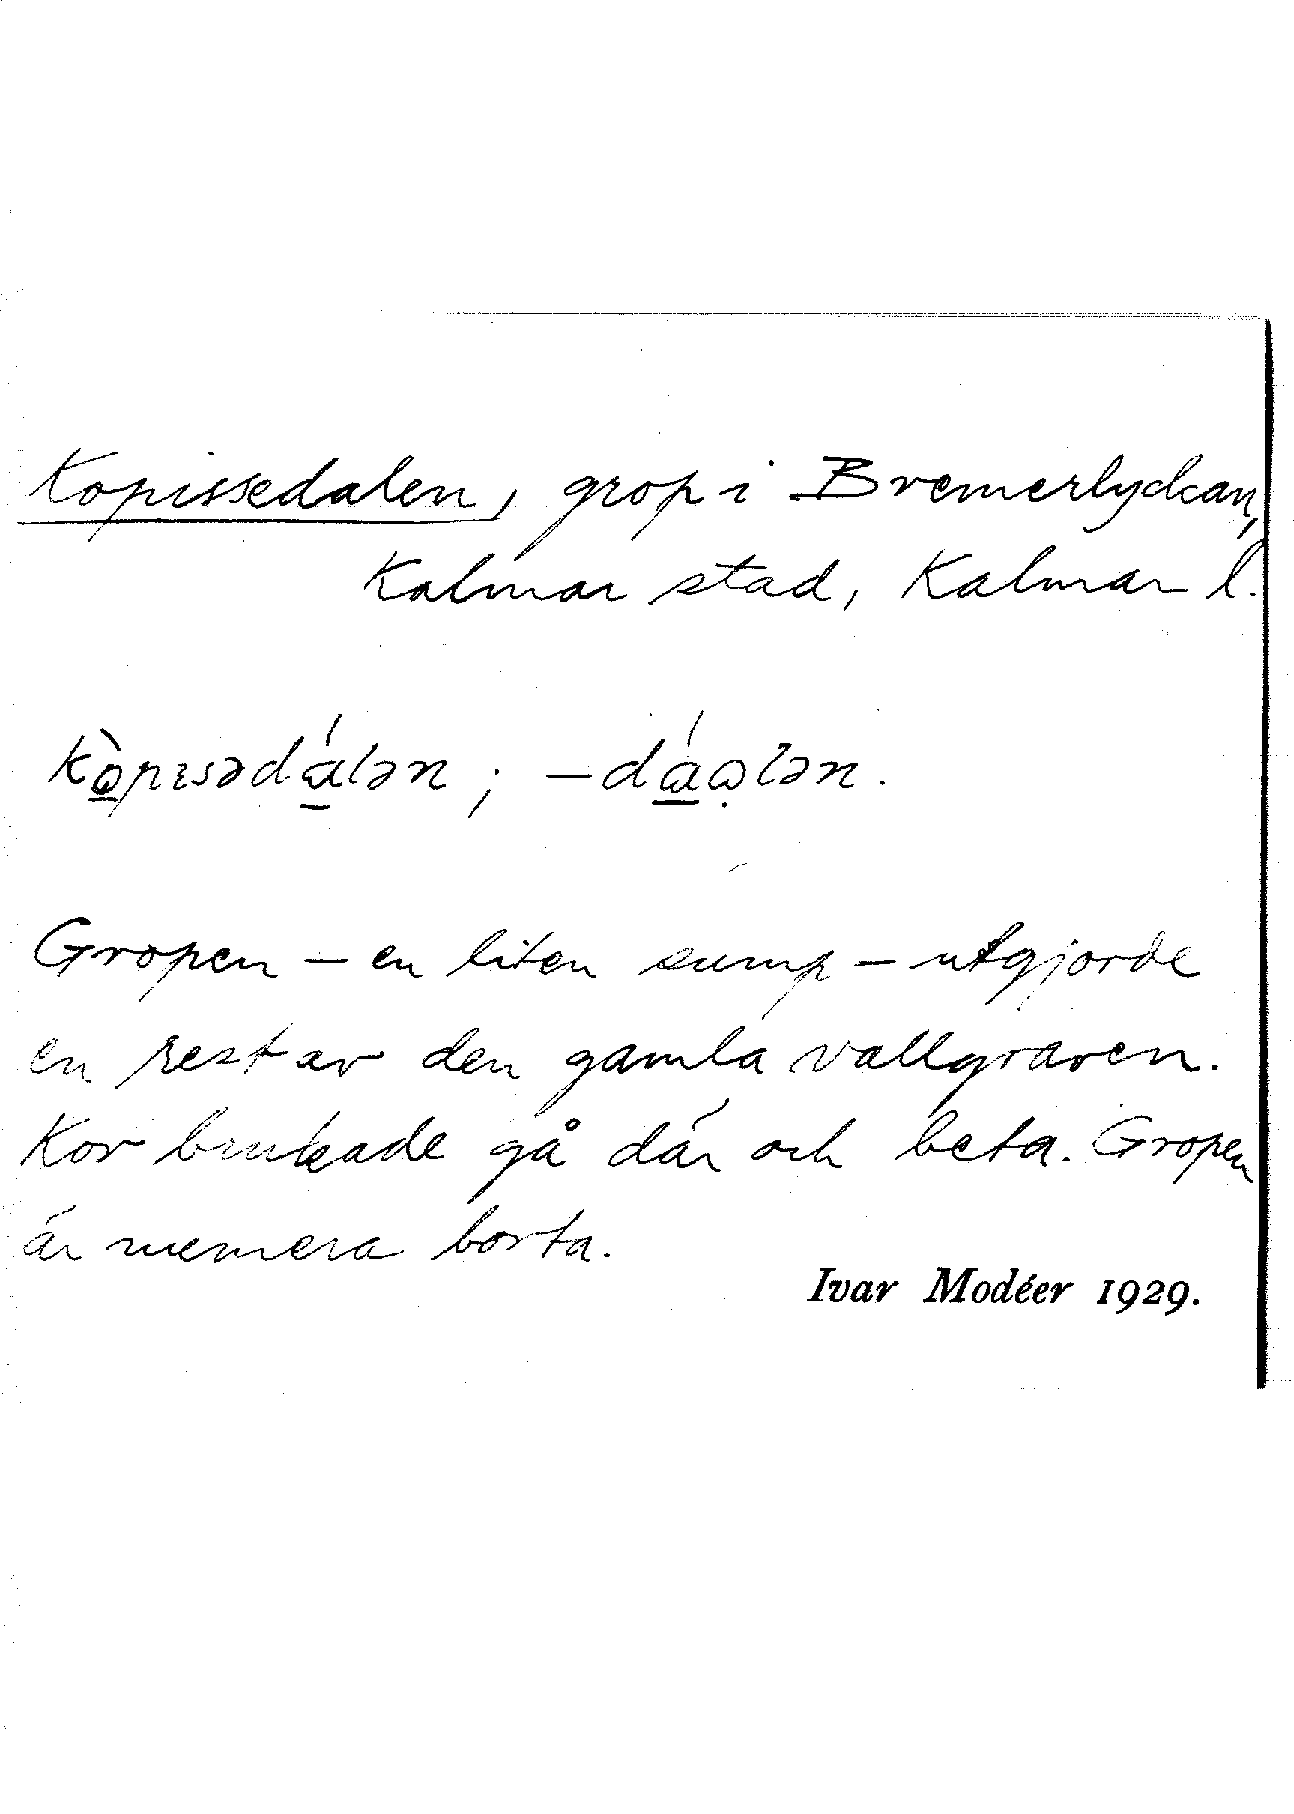 Kopissedalen, grop i Bremerlyckan,
Kalmar stad, Kalmar l.
kò̲pɪsədá̲lən ; –dá̲ọlən.
Gropen – en liten sump – utgjorde
en rest av den gamla vallgraven.
Kor brukade gå där och beta. Gropen
är numera borta.
Ivar Modéer 1929.